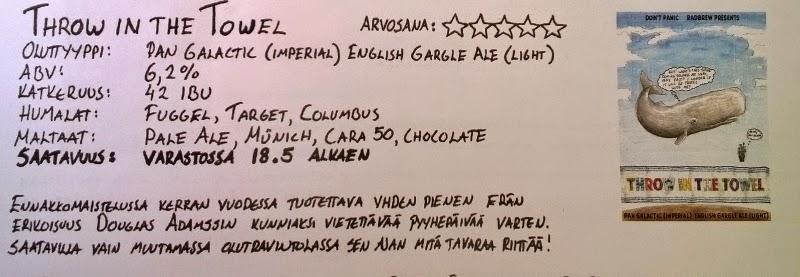 THROW IN THE TOWEL ARVOSANA:
OLUTTYYPPI: PAN GALACTIC (IMPERIAL) ENGLISH GARGLE ALE (LIGHT)
ABV: 6,2%
KATKERUUS: 42 IBU
HUMALAT: FUGGEL, TARGET, COLUMBUS
MALTAAT: PALE ALE, MÜNICH, CARA 50, CHOCOLATE
SAATAVUUS: VARASTOSSA 18.5 ALKAEN
ENNAKKOMAISTELUSSA KERRAN VUODESSA TUOTETTAVA YHDEN PIENEN ERÄN
ERIKOISUUS DOUGLAS ADAMSSIN KUNNIAKSI VIETETTÄVÄÄ PYYHEPÄIVÄÄ VARTEN.
SAATAVILLA VAIN MUUTAMASSA OLUTRAVINTOLASSA SEN AJAN MITÄ TAVARAA RIITTÄÄ!
DON'T PANIC RADBREW PRESENTS
THROW IN THE TOWEL
PAN GALACTIC (IMPERIAL) ENGLISH GARGLE ALE (LIGHT)